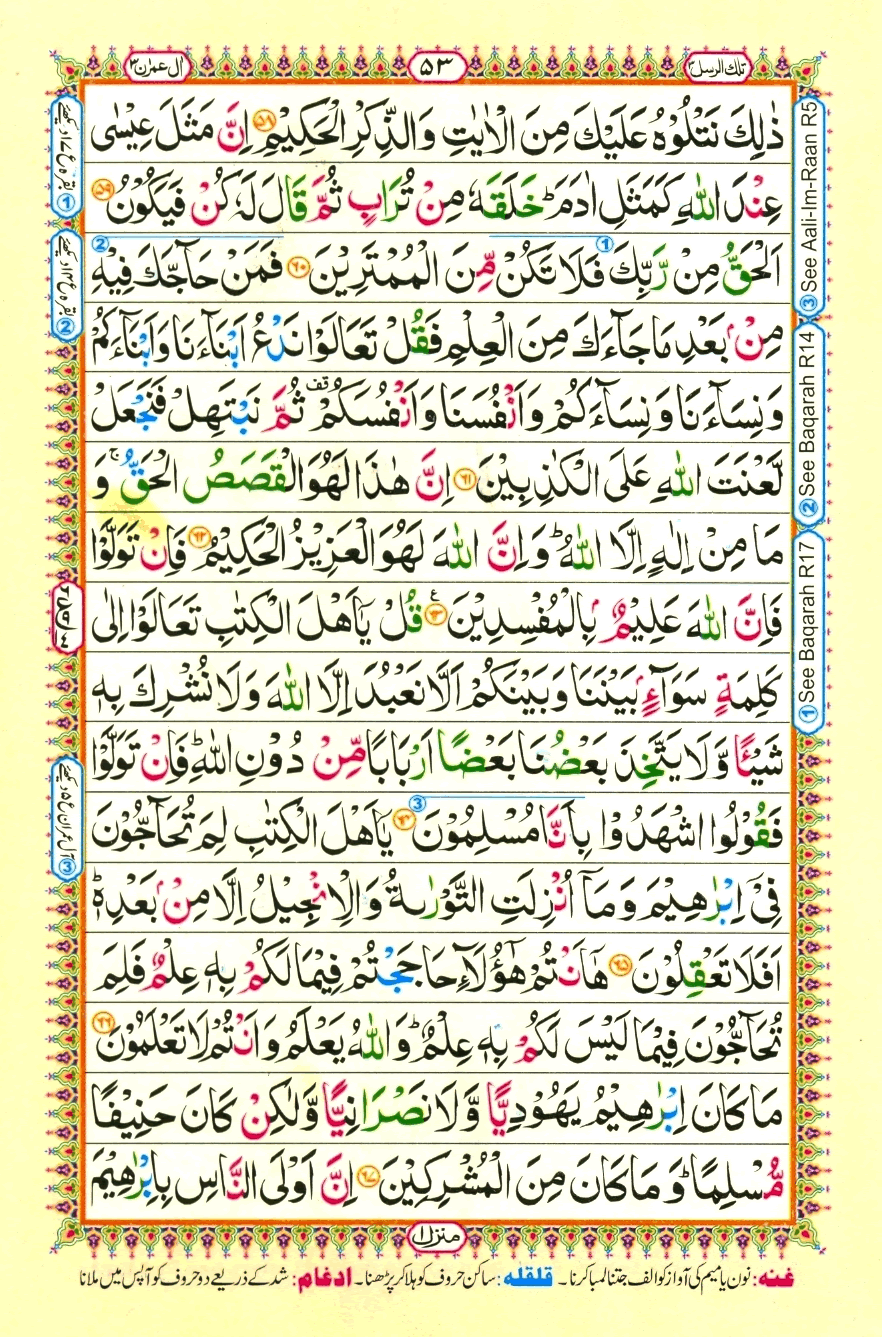 تلك الرسل ٣
٥٣
ال عمرٰن ٣
ذٰلِكَ نَتْلُوْهُ عَلَيْكَ مِنَ الْاٰيٰتِ وَالذِّكْرِ الْحَكِيْمِ ﴿٥٨﴾ اِنَّ مَثَلَ عِيْسٰى
عِنْدَ اللّٰهِ كَمَثَلِ اٰدَمَ ؕ خَلَقَهٗ مِنْ تُرَابٍ ثُمَّ قَالَ لَهٗ كُنْ فَيَكُوْنُ ﴿٥٩﴾
اَلْحَقُّ مِنْ رَّبِّكَ فَلَا تَكُنْ مِّنَ الْمُمْتَرِيْنَ ﴿٦٠﴾ فَمَنْ حَآجَّكَ فِيْهِ
مِنْۢ بَعْدِ مَا جَآءَكَ مِنَ الْعِلْمِ فَقُلْ تَعَالَوْا نَدْعُ اَبْنَآءَنَا وَاَبْنَآءَكُمْ
وَنِسَآءَنَا وَنِسَآءَكُمْ وَاَنْفُسَنَا وَاَنْفُسَكُمْ قف ثُمَّ نَبْتَهِلْ فَنَجْعَلْ
لَّعْنَتَ اللّٰهِ عَلَى الْكٰذِبِيْنَ ﴿٦١﴾ اِنَّ هٰذَا لَهُوَ الْقَصَصُ الْحَقُّ ۚ وَ
مَا مِنْ اِلٰهٍ اِلَّا اللّٰهُ ؕ وَاِنَّ اللّٰهَ لَهُوَ الْعَزِيْزُ الْحَكِيْمُ ﴿٦٢﴾ فَاِنْ تَوَلَّوْا
فَاِنَّ اللّٰهَ عَلِيْمٌۢ بِالْمُفْسِدِيْنَ ﴿٦٣﴾ ع قُلْ يٰۤاَهْلَ الْكِتٰبِ تَعَالَوْا اِلٰى
كَلِمَةٍ سَوَآءٍۭ بَيْنَنَا وَبَيْنَكُمْ اَلَّا نَعْبُدَ اِلَّا اللّٰهَ وَلَا نُشْرِكَ بِهٖ
شَيْـًٔا وَّلَا يَتَّخِذَ بَعْضُنَا بَعْضًا اَرْبَابًا مِّنْ دُوْنِ اللّٰهِ ؕ فَاِنْ تَوَلَّوْا
فَقُوْلُوا اشْهَدُوْا بِاَنَّا مُسْلِمُوْنَ ﴿٦٤﴾ يٰۤاَهْلَ الْكِتٰبِ لِمَ تُحَآجُّوْنَ
فِىْۤ اِبْرٰهِيْمَ وَمَاۤ اُنْزِلَتِ التَّوْرٰىةُ وَالْاِنْجِيْلُ اِلَّا مِنْۢ بَعْدِهٖ ؕ
اَفَلَا تَعْقِلُوْنَ ﴿٦٥﴾ هٰۤاَنْتُمْ هٰٓؤُلَآءِ حَاجَجْتُمْ فِيْمَا لَكُمْ بِهٖ عِلْمٌ فَلِمَ
تُحَآجُّوْنَ فِيْمَا لَيْسَ لَكُمْ بِهٖ عِلْمٌ ؕ وَاللّٰهُ يَعْلَمُ وَاَنْتُمْ لَا تَعْلَمُوْنَ ﴿٦٦﴾
مَا كَانَ اِبْرٰهِيْمُ يَهُوْدِيًّا وَّلَا نَصْرَانِيًّا وَّلٰكِنْ كَانَ حَنِيْفًا
مُّسْلِمًا ؕ وَمَا كَانَ مِنَ الْمُشْرِكِيْنَ ﴿٦٧﴾ اِنَّ اَوْلَى النَّاسِ بِاِبْرٰهِيْمَ
③ See Aali-Im-Raan R5
② See Baqarah R14
① See Baqarah R17
بقرہ ع ١٧ دیکھئے ①
بقرہ ع ١٤ دیکھئے ②
آل عمران ع ٥ دیکھئے ③
منزل ١
غنه: نون یا میم کی آواز کو الف جتنا لمبا کرنا۔ قلقله: ساکن حروف کو ہلا کر پڑھنا۔ ادغام: شد کے ذریعے دو حروف کو آپس میں ملانا